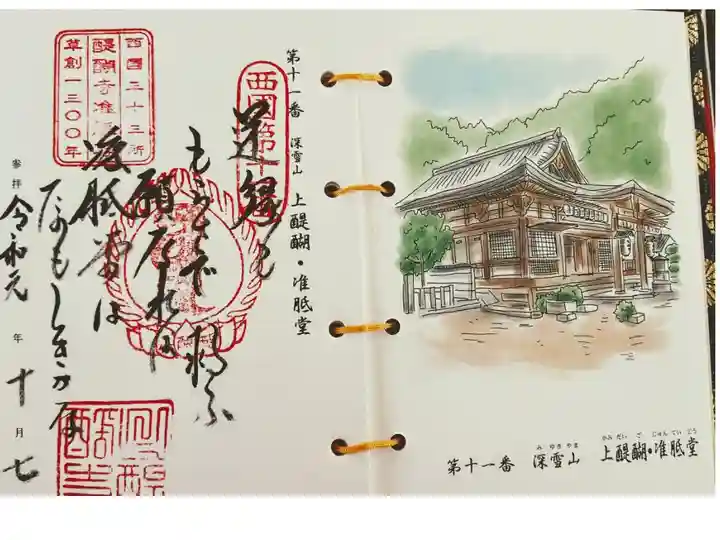 みゆきやま かみだいご じゅんていどう
第十一番 深雪山 上醍醐・准胝堂
第十一番 深雪山 上醍醐・准胝堂
西国第十
逆縁も
もらさで 救ふ
願なれば
准胝堂は
たのもしきかな
西国三十三所
醍醐寺准
草創一三〇〇年
参拝 令和元年十月七